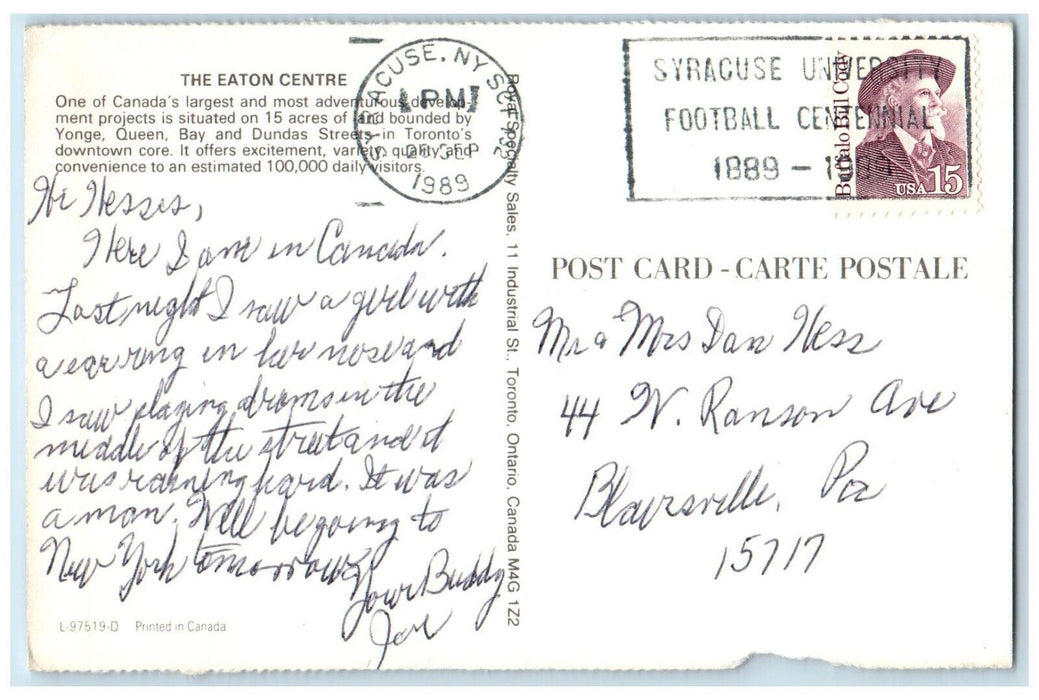 THE EATON CENTRE
One of Canada's largest and most adventurous develop-
ment projects is situated on 15 acres of land bounded by
Yonge, Queen, Bay and Dundas Streets—in Toronto's
downtown core. It offers excitement, variety, quality and
convenience to an estimated 100,000 daily visitors.
Hi Hesses,
Here I am in Canada.
Last night I saw a girl with
a earring in her nose and
I saw playing drums in the
middle of the street and it
was raining hard. It was
a man. Will be going to
New York tomorrow.
Your Buddy
Joe
L-97519-D Printed in Canada
Royal Specialty Sales, 11 Industrial St., Toronto, Ontario, Canada M4G 1Z2
SYRACUSE, NY SCF 132
PM
SEP
1989
SYRACUSE UNIVERSITY
FOOTBALL CENTENNIAL
1889 - 1989
Buffalo Bill Cody
USA 15
POST CARD - CARTE POSTALE
Mr & Mrs Dan Hess
44 W. Ranson Ave
Blairsville, Pa
15717